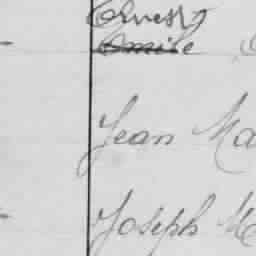 Ernest
Emile
Jean Ma
Joseph M